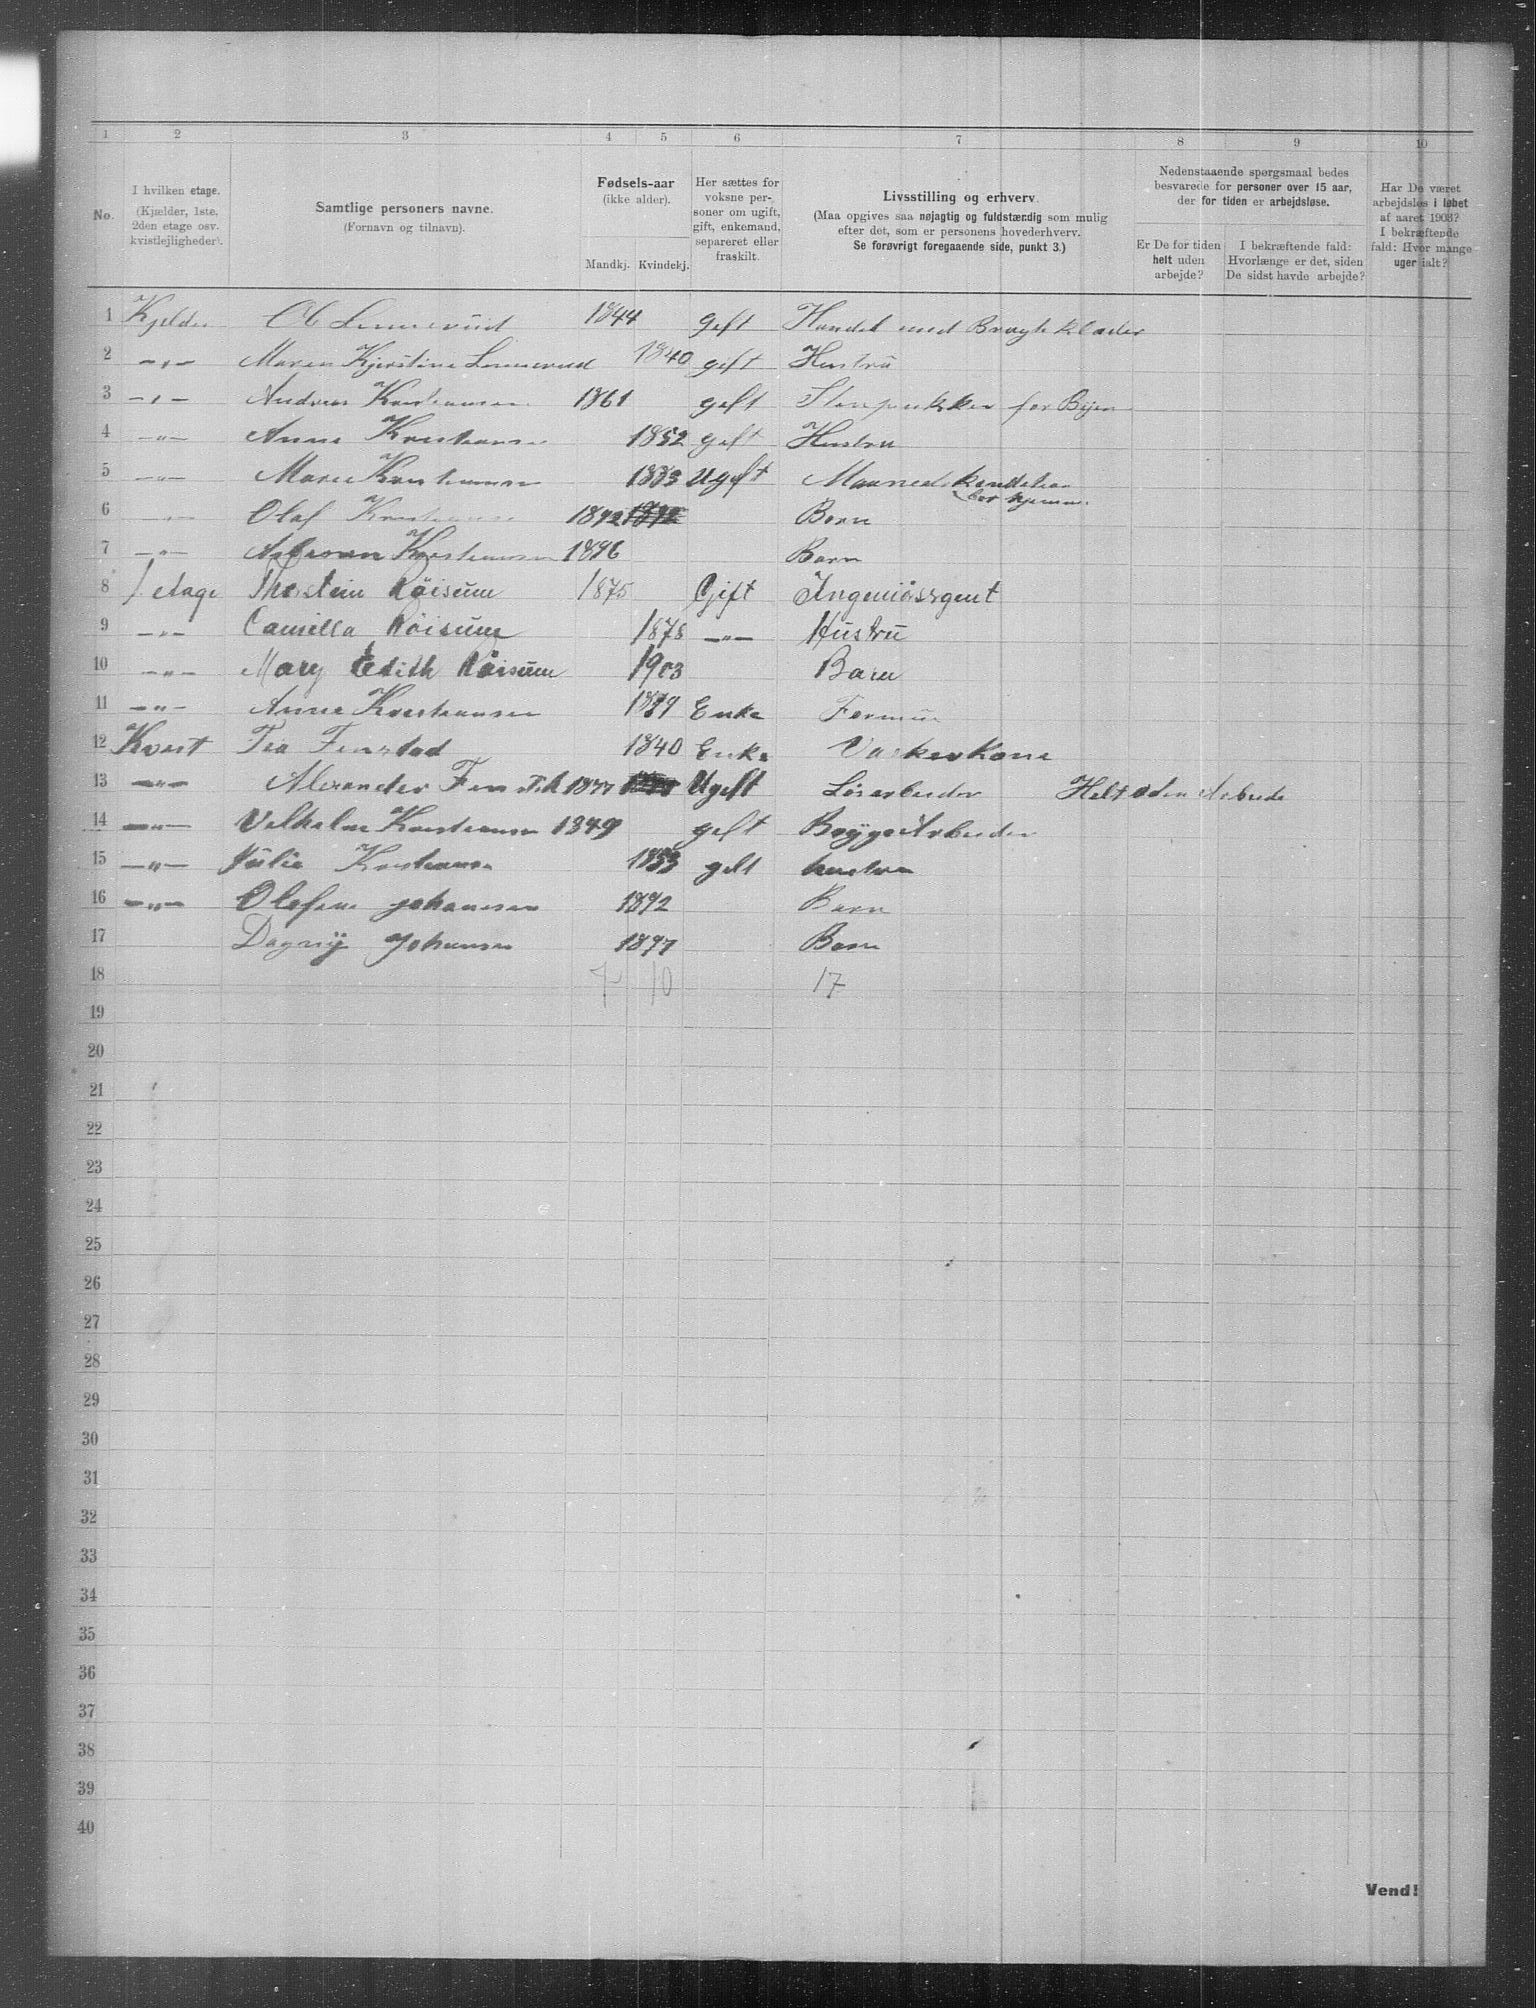 1 2 3 4 5 6 7 8 9 10
No.
I hvilken etage.
(Kjælder, 1ste,
2den etage osv.
kvistlejligheder).
Samtlige personers navne.
(Fornavn og tilnavn).
Fødsels-aar
(ikke alder).
Mandkj. Kvindekj.
Her sættes for
voksne per-
soner om ugift,
gift, enkemand,
separeret eller
fraskilt.
Livsstilling og erhverv.
(Maa opgives saa nøjagtig og fuldstændig som mulig
efter det, som er personens hovederhverv.
Se forøvrigt foregaaende side, punkt 3.)
Nedenstaaende spørgsmaal bedes
besvarede for personer over 15 aar,
der for tiden er arbejdsløse.
Er De for tiden
helt uden
arbejde?
I bekræftende fald:
Hvorlænge er det, siden
De sidst havde arbejde?
Har De været
arbejdsløs i løbet
af aaret 1903?
I bekræftende
fald: Hvor mange
uger ialt?
1 Kjelder 1844 gift Handel med Brugte klæder
2 —"— Maren Kjerstine 1840 gift Hustru
3 —"— Andreas Kristiansen 1861 gift Stenpukker for Byen
4 —"— Anna Kristiansen 1852 gift Hustru
5 —"— Marie Kristiansen 1883 Ugift
bor hjemme
6 —"— Olaf Kristiansen 1892 Barn
7 —"— Kristiansen 1896 Barn
8 1 etage Thorstein Røisum 1875 Gift
9 —"— Camilla Røisum 1878 —"— Hustru
10 —"— Mary Edith Røisum 1903 Barn
11 —"— Anna Kristiansen Enke
12 Kvist Tea Finstad 1840 Enke Vaskerkone
13 —"— Alexander 1877 Ugift Løsarbeider Helt uden Arbeide
14 —"— Vilhelm Kristiansen 1849 gift Bryggearbeider
15 —"— Julie Kristiansen 1853 gift hustru
16 —"— Olefine Johansen 1892 Barn
17 Dagny Johansen 1897 Barn
18 7 10 17
19
20
21
22
23
24
25
26
27
28
29
30
31
32
33
34
35
36
37
38
39
40
Vend!